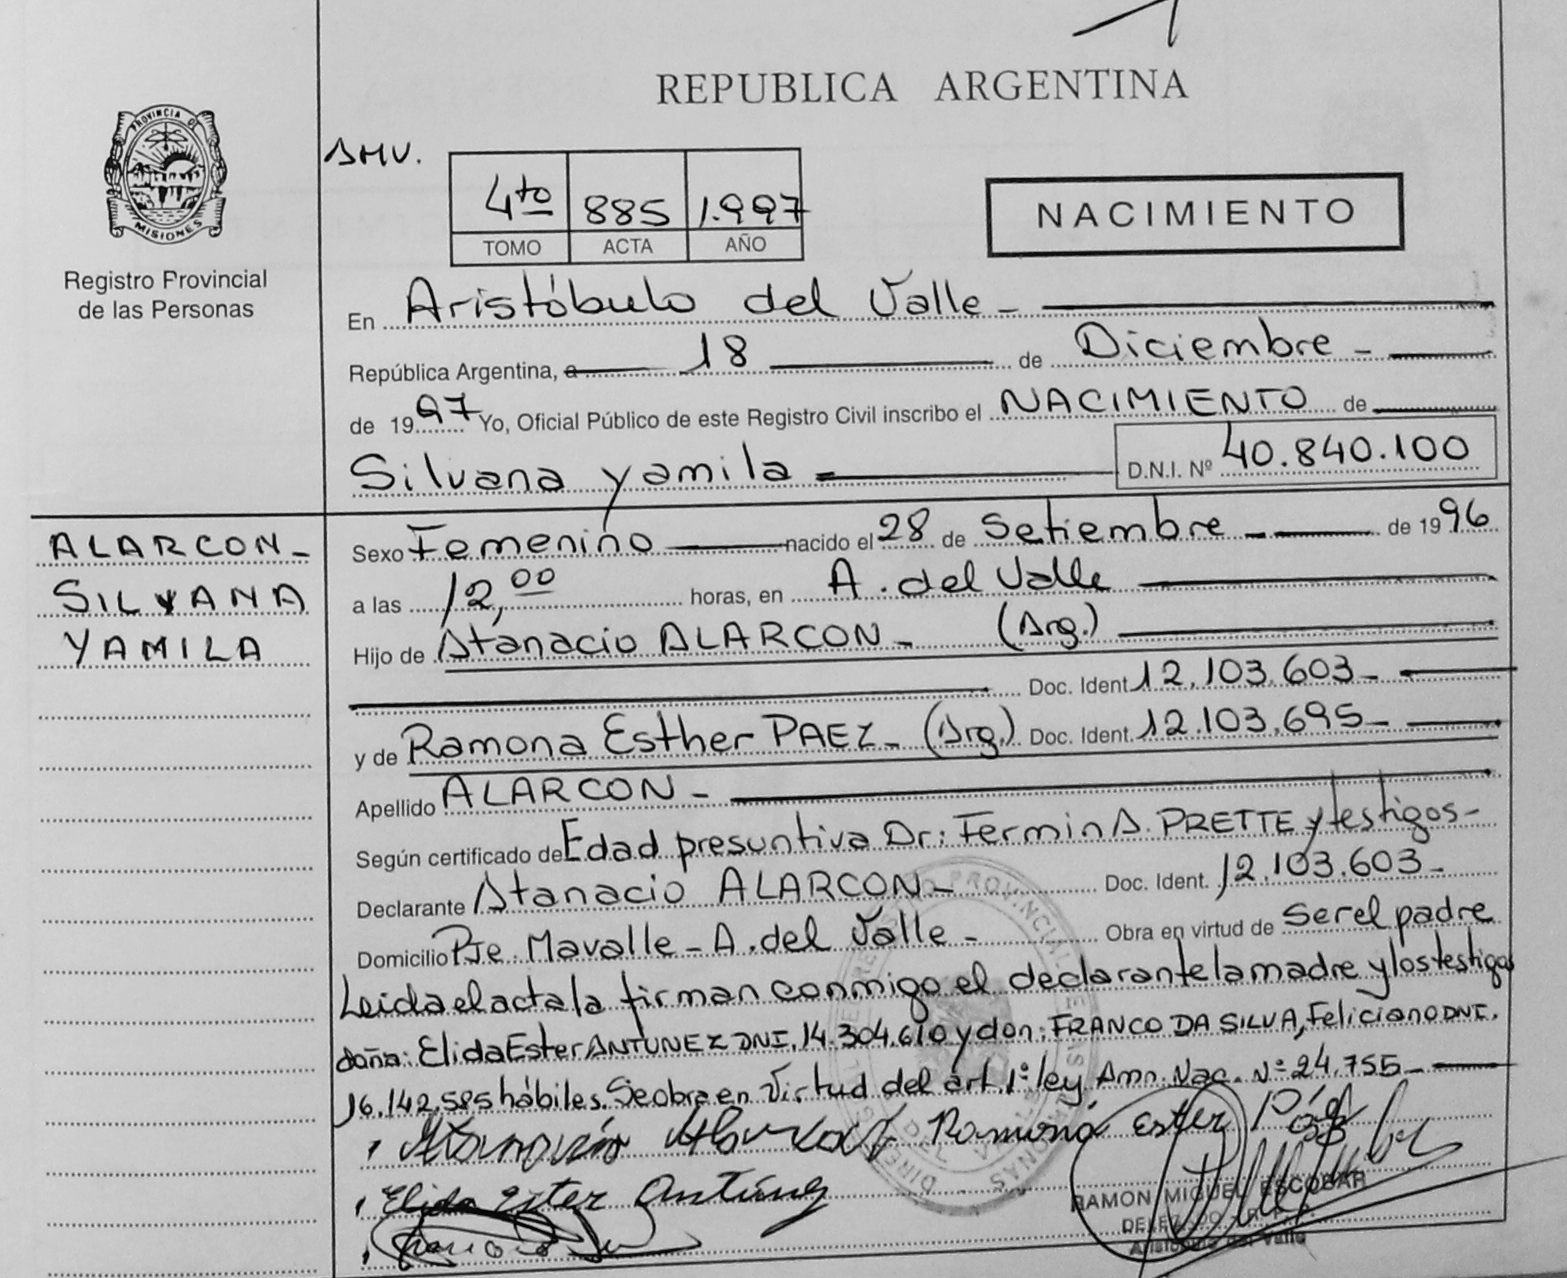 REPUBLICA ARGENTINA
PROVINCIA DE
MISIONES
Registro Provincial
de las Personas
AMV.
4to 885 1.997
TOMO ACTA AÑO
NACIMIENTO
En Aristóbulo del Valle -
República Argentina, a 18 de Diciembre -
de 1997 Yo, Oficial Público de este Registro Civil inscribo el NACIMIENTO de
Silvana yamila - D.N.I. Nº 40.840.100
ALARCON -
SILVANA
YAMILA
Sexo Femenino nacido el 28 de Setiembre - de 1996
a las 12,00 horas, en A. del Valle
Hijo de Atanacio ALARCON - (Arg.)
Doc. Ident. 12.103.603 -
y de Ramona Esther PAEZ - (Arg.) Doc. Ident. 12.103.695 -
Apellido ALARCON -
Según certificado de Edad presuntiva Dr: Fermin A. PRETTE y testigos -
Declarante Atanacio ALARCON - Doc. Ident. 12.103.603 -
Domicilio Pje. Mavalle - A. del Valle - Obra en virtud de ser el padre
Leida el acta la firman conmigo el declarante la madre y los testigos
doña: Elida Ester ANTUNEZ DNI. 14.304.610 y don: FRANCO DA SILVA, Feliciano DNI.
16.142.585 hábiles. Se obra en Virtud del art. 1º ley. Amn. Nac. Nº 24.755 -
Ramona Ester Páez
Elida Ester Antúnez
RAMON MIGUEL ESCOBAR
Aristóbulo del Valle